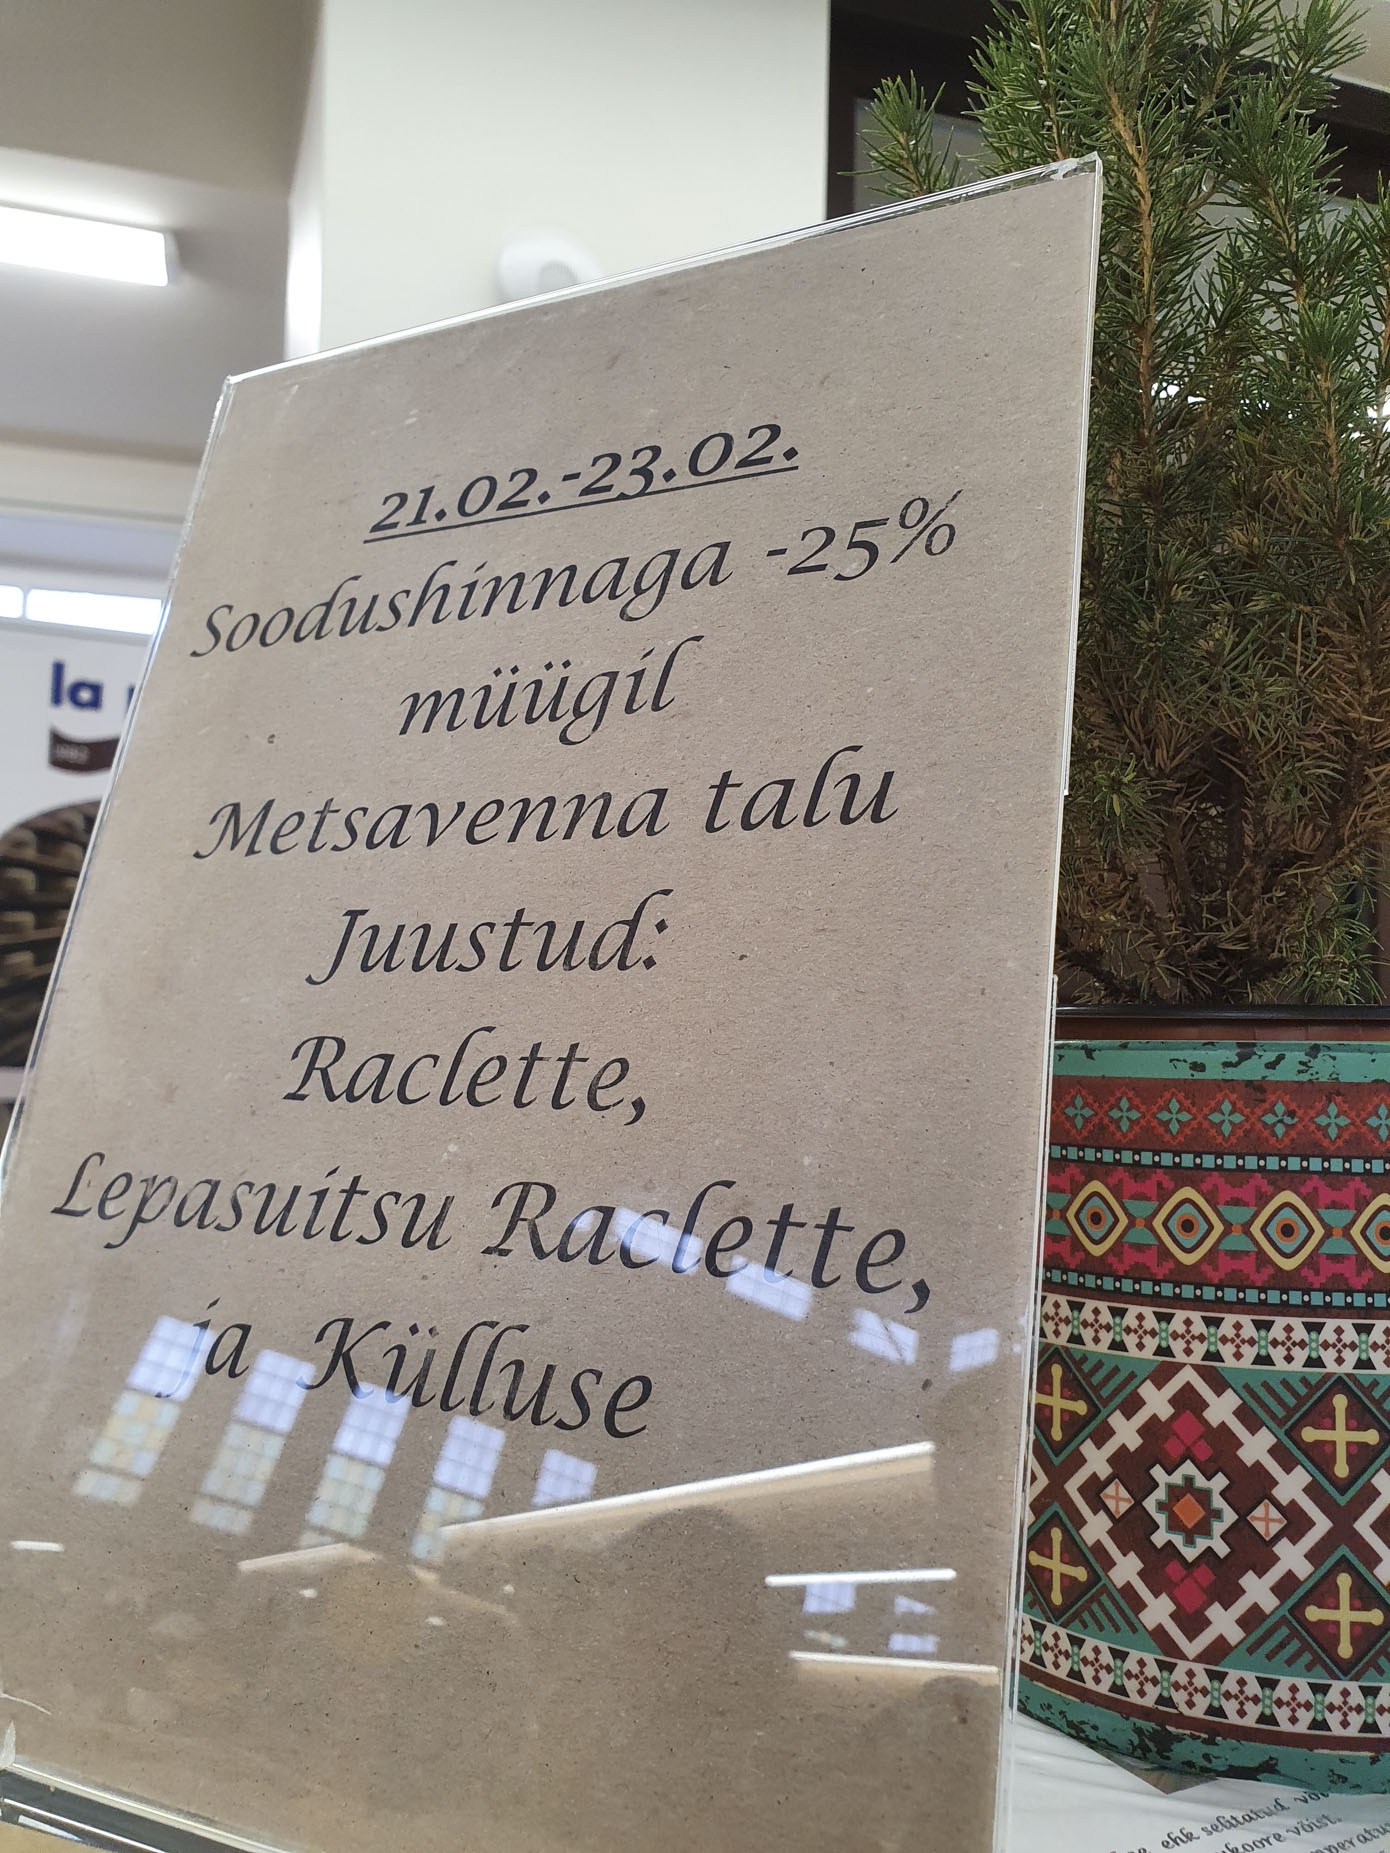 21.02.-23.02.
Soodushinnaga -25%
müügil
Metsavenna talu
Juustud:
Raclette,
Lepasuitsu Raclette,
ja Külluse
la
ehk selitatud
võist.